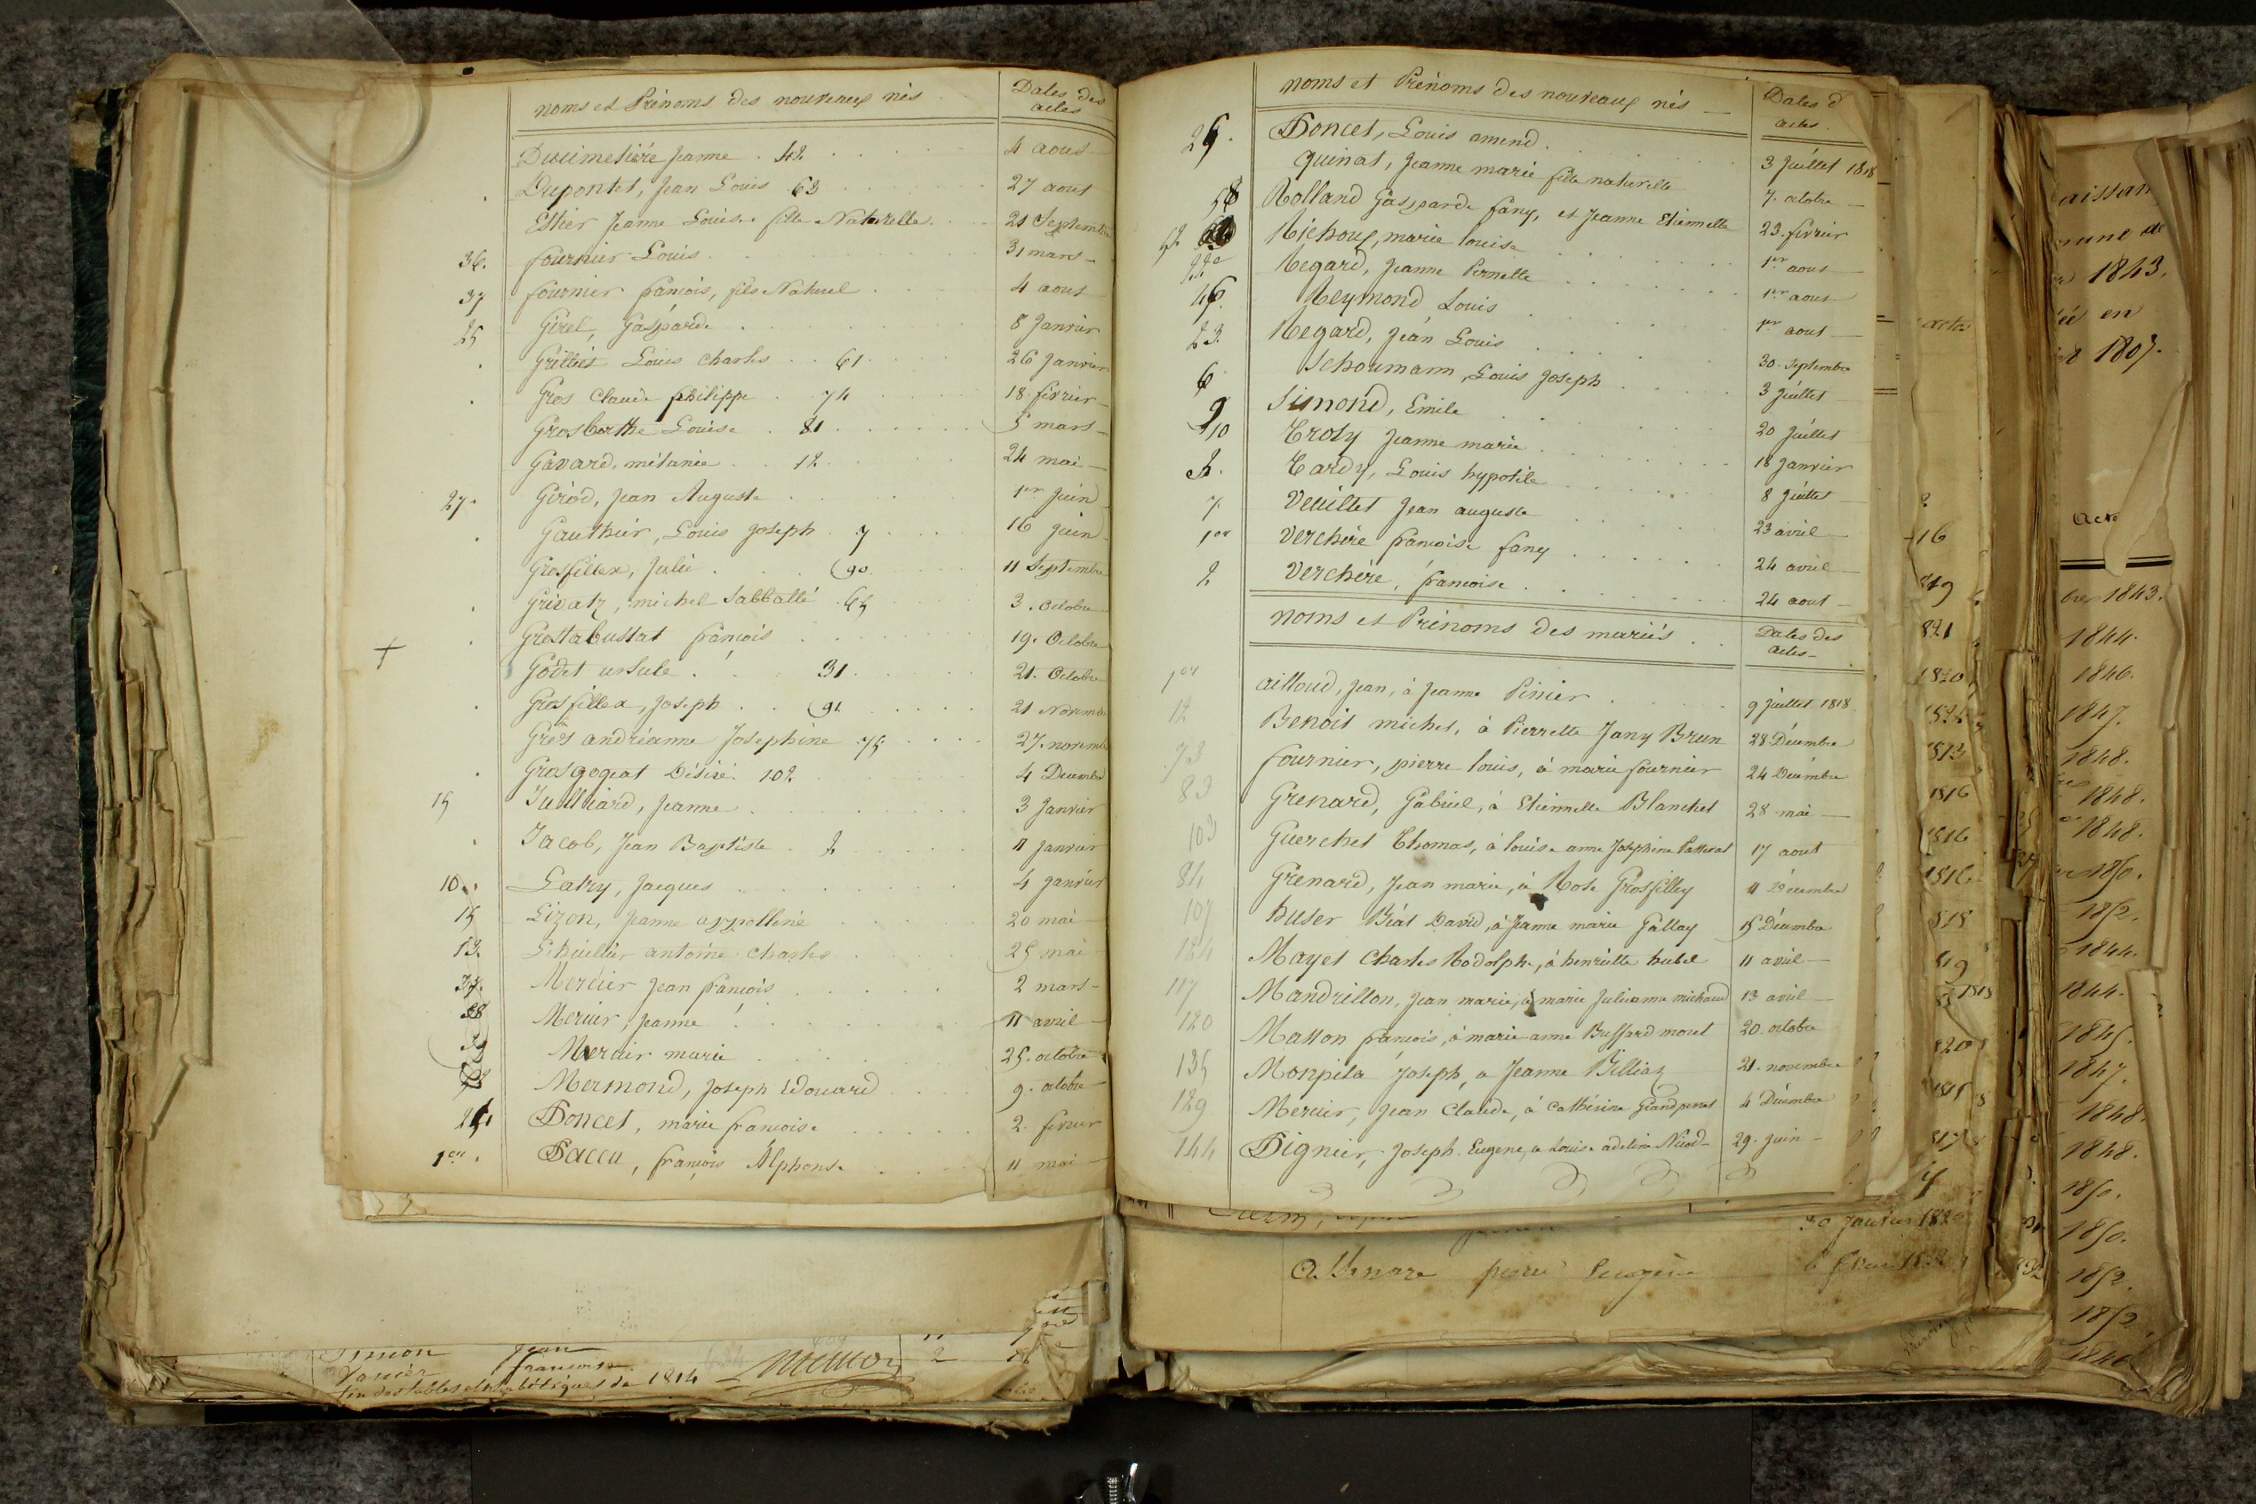 noms et Prénoms des nouveaux nés Dates des actes
Ducimetière Jeanne . 42 4 aout
Dupontet, Jean Louis 63 27 aout
Estier Jeanne Louise fille Naturelle. 21 Septembre
36. fournier Louis 31 mars
37 fournier francois, fils Naturel 4 aout
25 Girel, Gasparde 8 Janvier
Grilliet Louis Charles 61 26 Janvier
Gros Claude philippe 74 18 février
Grosborthe Louise 81 5 mars
Gavard mélanie 12 24 mai
27. Girod, Jean Auguste 1er Juin
Gauthier, Louis Joseph 7 16 Juin
Grosfillex, Julie 90 11 Septembre
Grivatz, michel 3. Octobre
Grostabussat françois 19. Octobre
Godet ursule 31 21. Octobre
Grosfillex, Joseph 91 21 Novem
Gros andréanne Josephine 75 27. novemb
Grosgogeat Désiré. 102 4 Decembre
15 Juilliard, Jeanne 3 Janvier
Jacob, Jean Baptiste 2 11 Janvier
10. Latry, Jacques 4 Janvier
15 Lizon, Jeanne appolline 20 mai
13. antoine Charles 25 mai
37. Mercier Jean francois 2 mars
38 Mercier, Jeanne 11 avril
Mercier marie 25. octobre
Mermond, Joseph Edouard 9. octobre
Poncet, marie francoise 2. fevrier
1er. Paccu, françois Alphonse 11 mai
noms et Prénoms des nouveaux nés Dates d actes
Poncet, Louis amend 3 Juillet 1818
quinat, Jeanne marie fille naturelle 7. octobre
58 Rolland Gasparde fany, et Jeanne Etiennette 23. fevrier
Michoux, marie louise 1er aout
Regard, Jeanne Pernette 1er aout
46. Reymond, Louis 1er aout
23. Regard, Jean Louis 30. Septembre
6 Schoumann, Louis Joseph 3 Juillet
9 Simond, Emile 20 Juillet
10 Troty Jeanne marie 18 Janvier
Tardy, Louis hypotile 8 Juillet
7. Veuillet Jean auguste 23 avril
1er Verchère francoise fany 24 avril
2 Verchère, francoise 24 aout
noms et Prénoms des mariés Dates des actes
1er ailloud, Jean, à Jeanne Pinier 9 Juillet 1818
12 Benoit michel, à Pierrette Jany Brun 28 Décembre
73 fournier, pierre louis, à marie fournier 24 Decémbre
83 Grenard, Gabriel, à Etiennette Blanchet 28 mai
103 Guerchet Thomas, à louise anne Josephine 17 aout
84 Grenard, Jean marie, à Rose Grosfilley 11 Décembre
107 huser Béat David, à Jeanne marie Gallay 15 Décembre
124 Mayet Charles Rodolphe, à henriette hubel 11 avril
117 Mandrillon, Jean marie, à marie Julieanne michaud 13 avril
120 Masson françois, à marie anne Buffard moret 20. octobre
135 Monpela Joseph, a Jeanne Billiaz 21. novembre
129 Mercier, Jean Claude, à Catherine Grandperret 4 Décembre
144 Pignier, Joseph Eugene, a Louise adeline Nicod 29. Juin
30 Janvier 1820
pierre Eugène
Simon Jean
françoise
fin des tables alphabétiques de 1814
1843.
en
1807.
acte
1843.
1844.
1846.
1847.
1848.
1848.
1848.
1850.
1852.
1844.
1844.
1845.
1847.
1848.
1848.
1850.
1850.
1852.
1852
1846